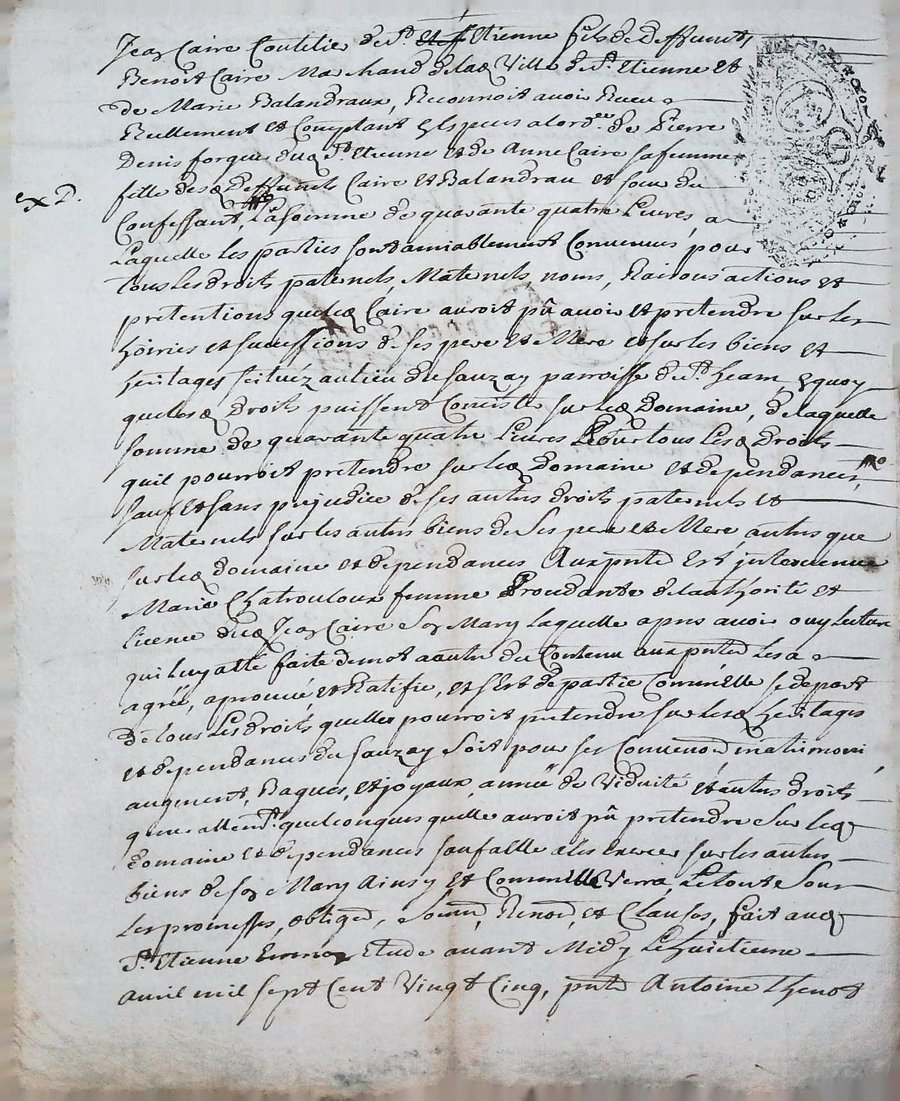 Jean Caire Coutelie de St Etienne fils de Deffunct,
Benoit Caire Marchand de lad Ville de St Etienne et
de Marie Balandraux, Reconnoit avoir Receu
Reellement et Comptant Esperes alord de Pierre
Denis forque dud St Etienne et de Anne Caire sa femme
fille desd Deffuncts Caire et Balandrau et soeur du
X D.
Confessant, La somme de quarante quatre Livres, a
Laquelle les parties sont amiablement Convenues, pour
tous Les droits paternels, Maternels, noms, Raisons actions et
pretentions que led Caire auroit pû avoir et pretendre sur les
hoiries et successions de ses pere et Mere et sur les biens et
heritages scituéz au lieu du Sauzay parroisse de St Jean, Equoy
que lesd droits puissent Concister sur led Domaine, de laquelle
somme de quarante quatre Livres Pour tous Lesd Droits
quil pourroit pretendre sur led Domaine et dependances,
sauf et sans prejudice de ses autres droits paternels et
Maternels sur les autres biens de Ses pere et Mere autres que
sur led domaine et dependances Aux pnts Est intervenue
Marie Chatrouloux femme Procedante de lauthorité et
licence dud Jean Caire Son Mary Laquelle apres avoir ouy lecture
qui luy a été faite de mot a autre du Contenu aux pntes Les a
agrée, aprouvée et Ratifie, et s'est departie Comme Elle se depart
De tous Les droits quelle pourroit pretendre sur Lesd heritages
et dependances du Sauzay Soit pour ses Convenod matrimoni
augment, Bagues, et joyaux, année de Viduité et autres droits
generallemt quelconques quelle auroit pû pretendre Sur led
Domaine et dependances sauf a Elle a les Exercer sur les autres
biens de son Mary Ainsy et Comme Elle Verra, Le tout Sous
Les promesses, obligod, Soumd, Renond, et Clauses, fait aud
St Etienne En mon Etude avant Midy Le huitieme
avril mil sept Cent Vingt Cinq, pnts Antoine Thenot